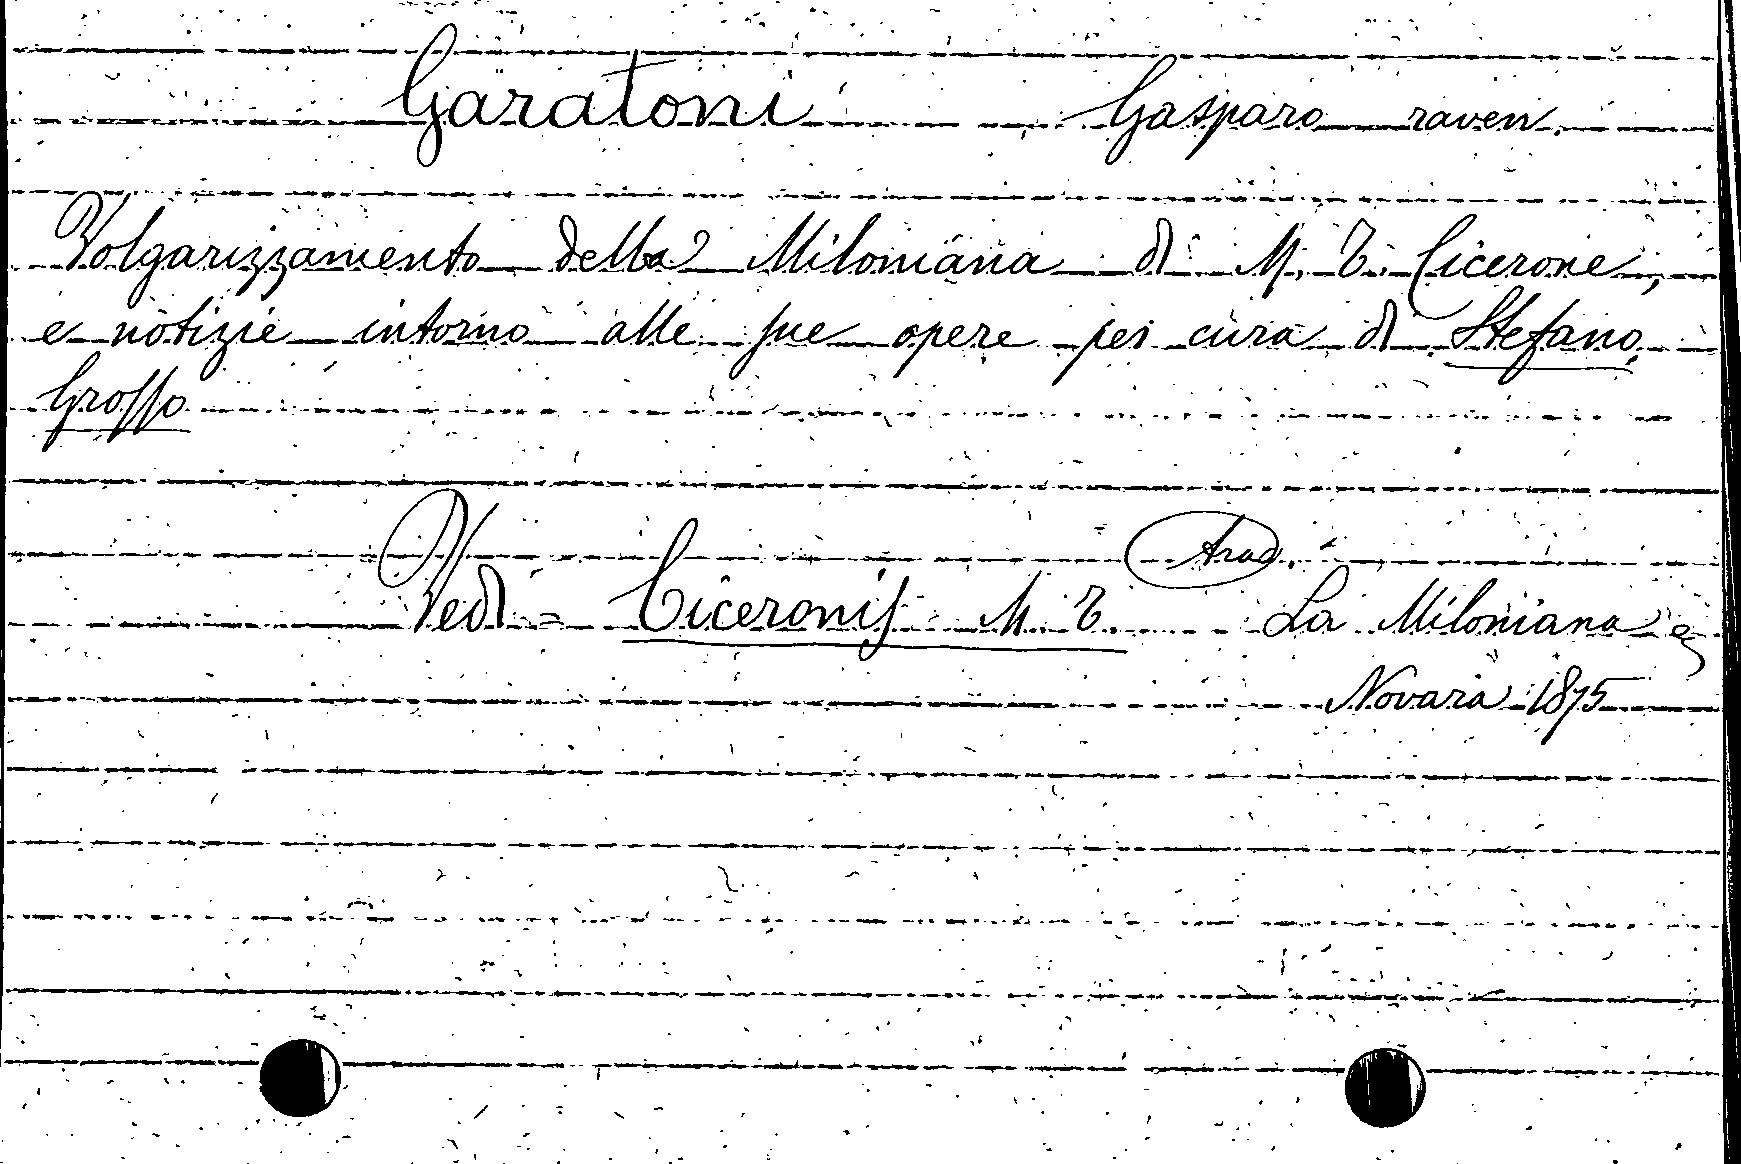 Garatoni Gasparo raven.
Volgarizzamento della Miloniana di M. T. Cicerone,
e notizie intorno alle sue opere per cura di Stefano
Grosso
Trad.
Vedi = Ciceronis M. T. La Miloniana &
Novara 1875